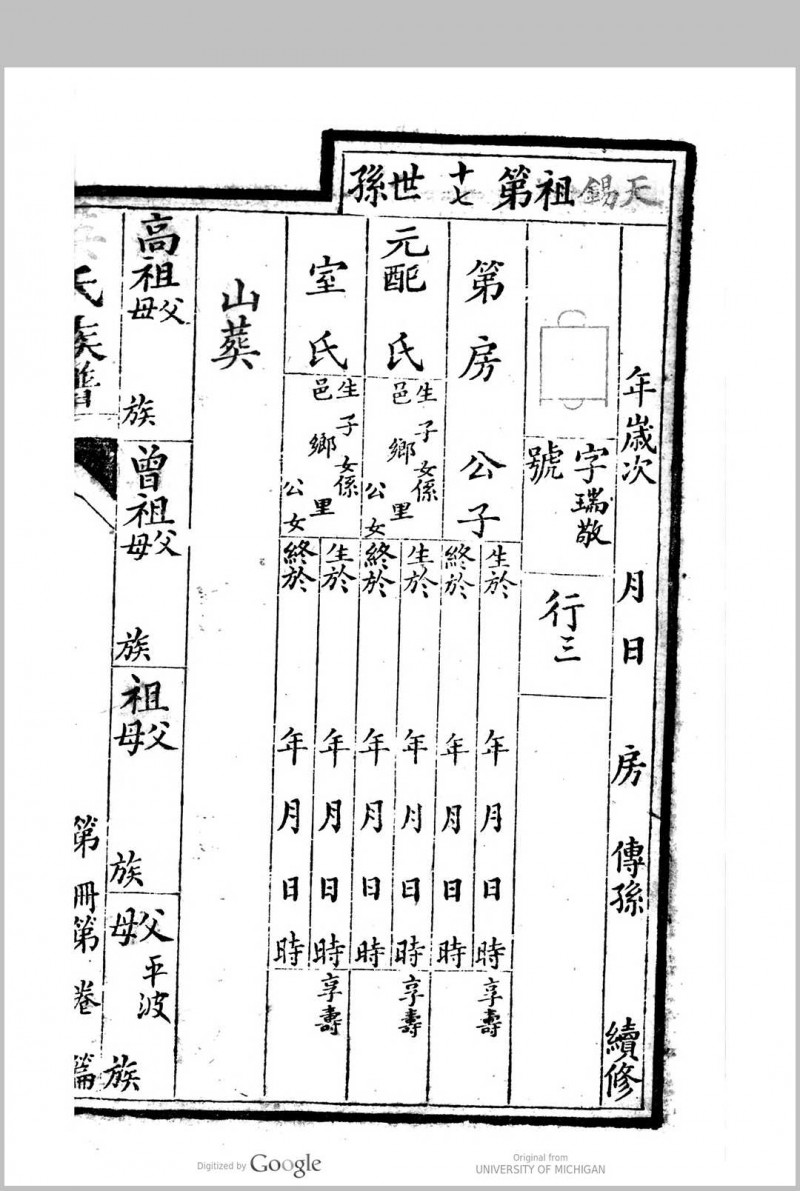 天錫祖第十七世孫
年歲次 月 日 房 傳孫 續修
字瑞敬
號
行三
第房 公子
生於 年月日時 享壽
終於 年月日時
元配 氏
生子女係
邑鄉里
公女
生於 年月日時 享壽
終於 年月日時
室 氏
生子女係
邑鄉里
公女
生於 年月日時 享壽
終於 年月日時
山葬
高祖父母 族
曾祖父母 族
祖父母 族
父平波
母 族
氏族譜
第 冊第 卷 篇
Digitized by Google
Original from
UNIVERSITY OF MICHIGAN